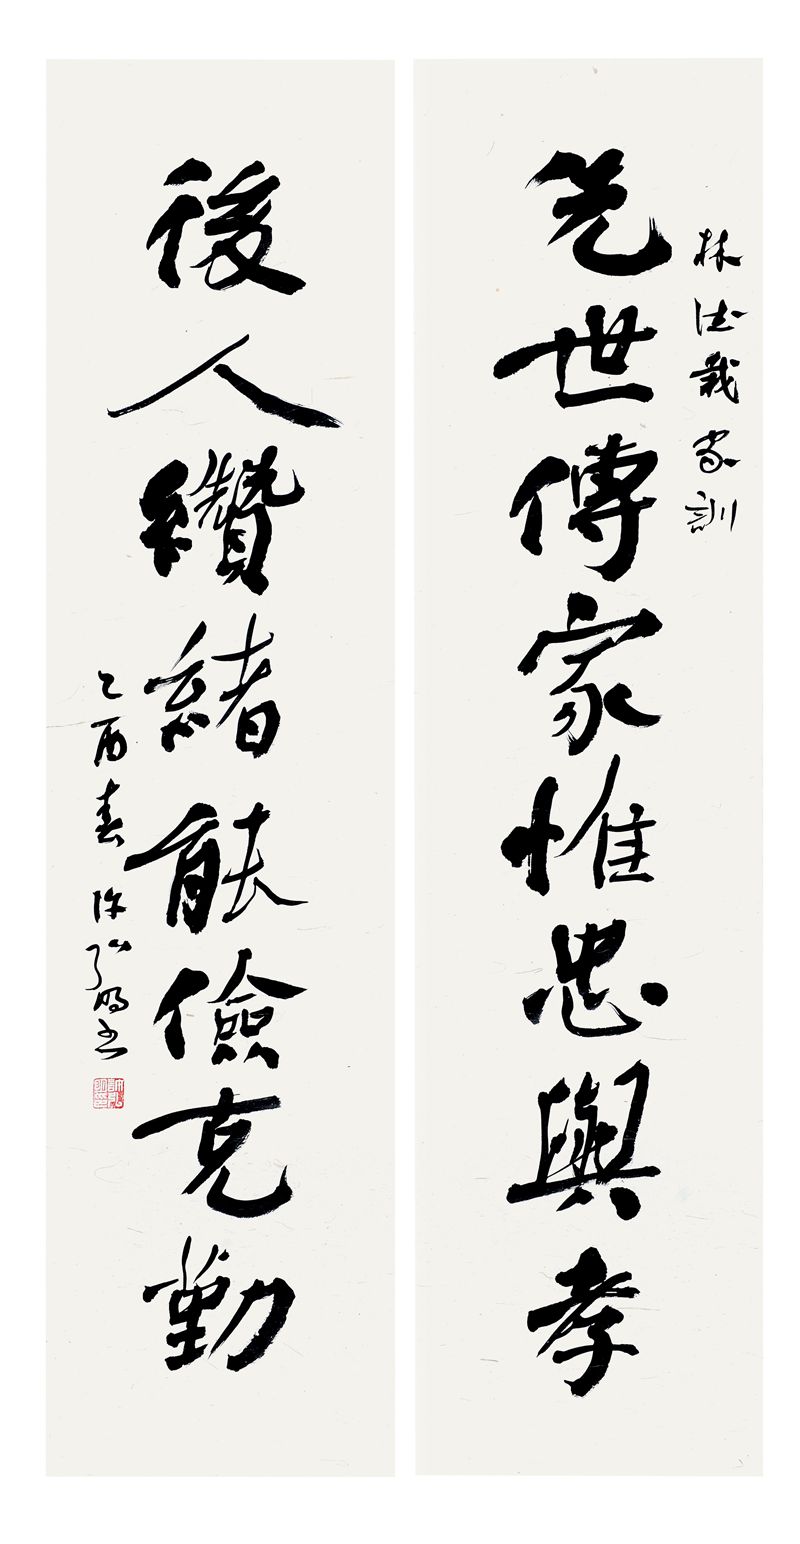 林家訓
先世傳家惟忠與孝
後人纘緒能儉克勤
乙酉春許弘明書